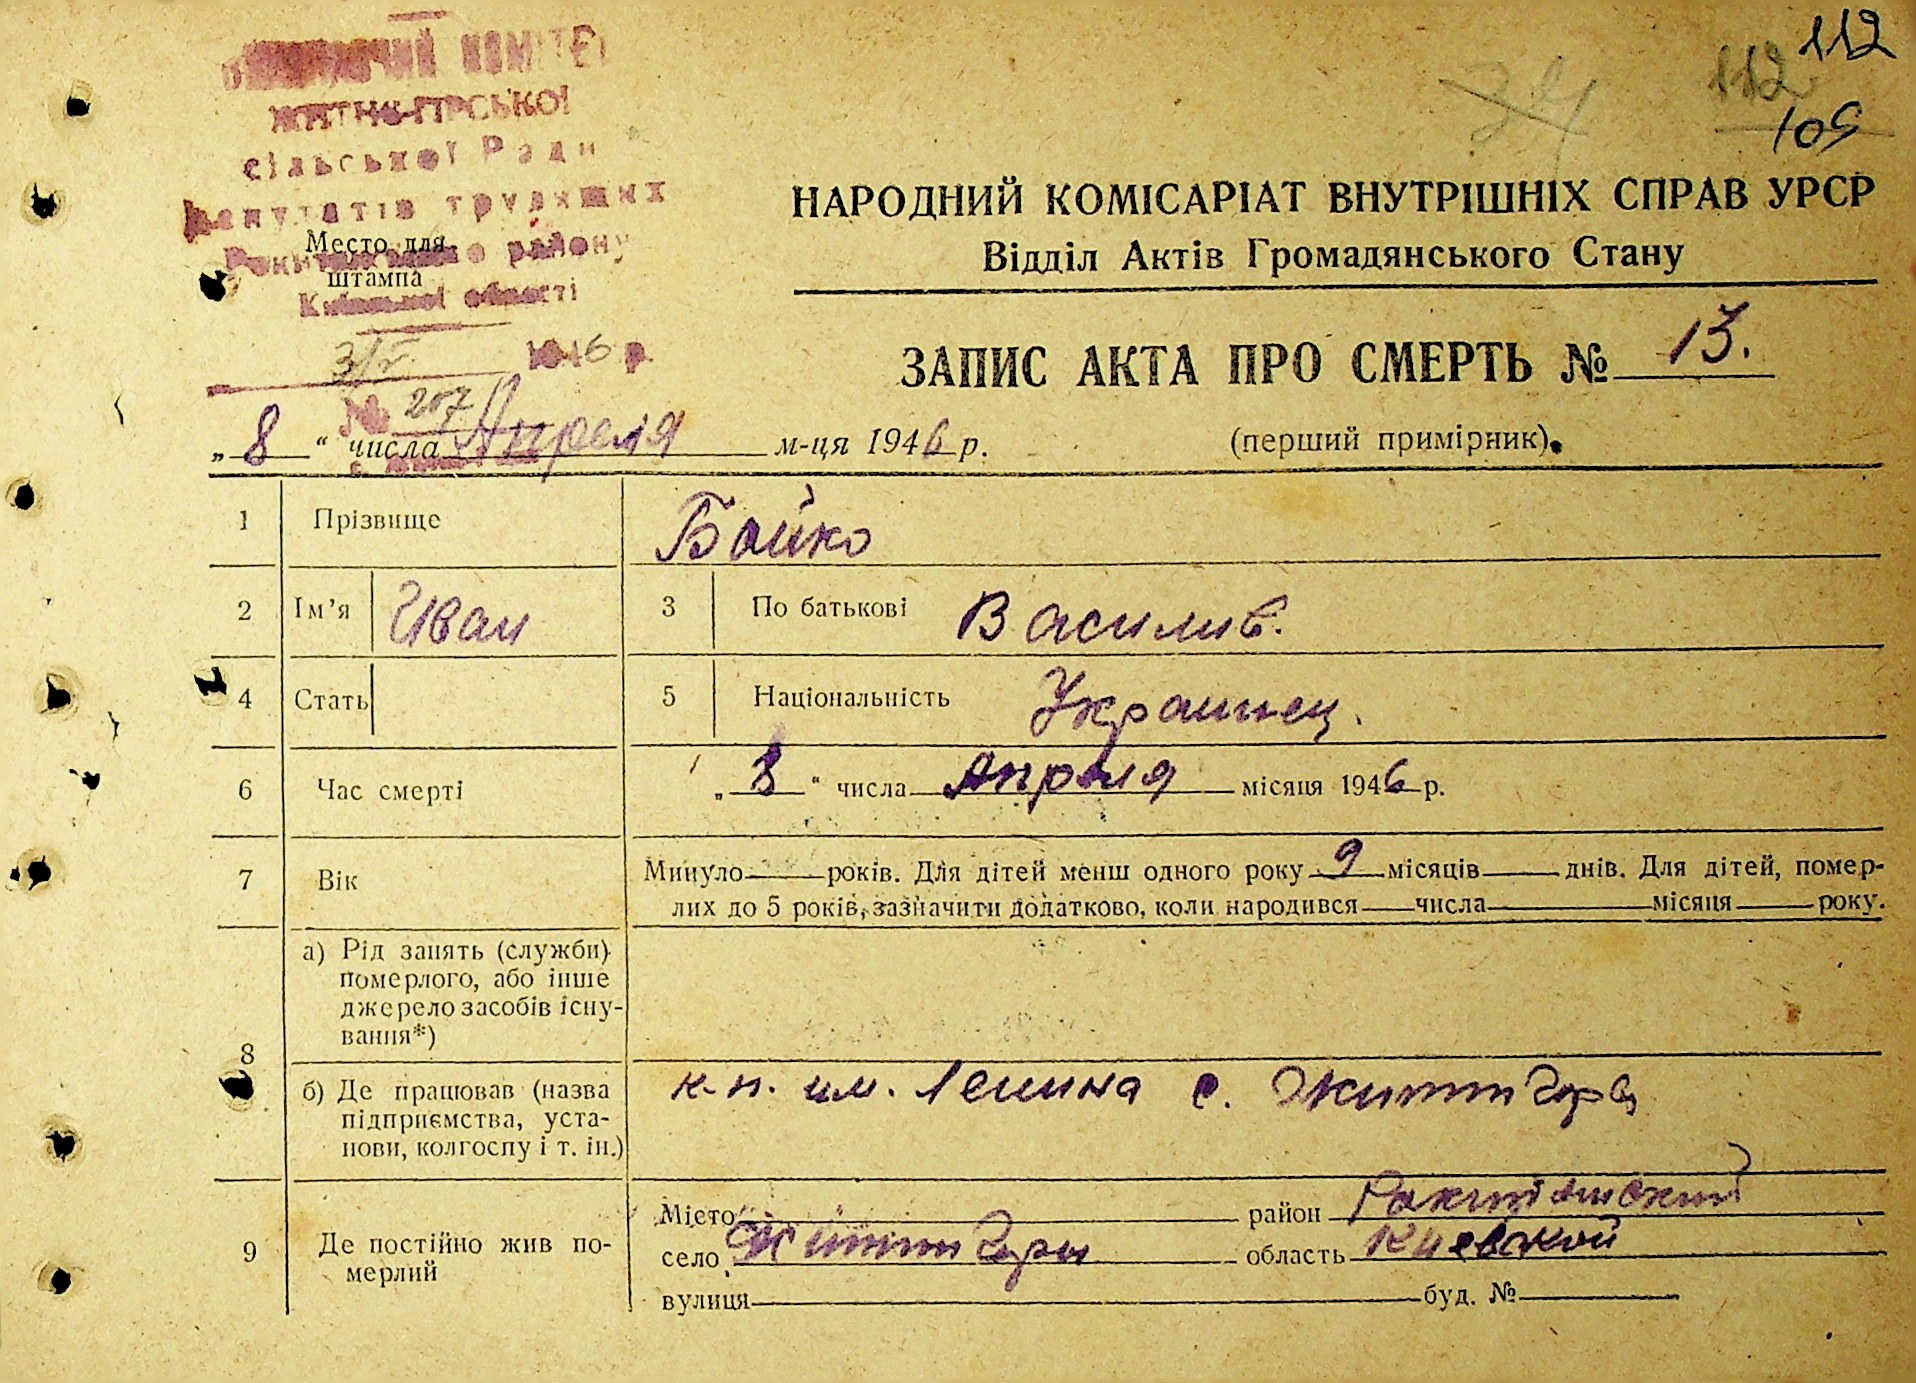 112
112
109
34
ВИКОНАВЧИЙ КОМІТЕТ
ЖИТНЬО-ГІРСЬКОЇ
сільської Ради
депутатів трудящих
Рокитнянського району
Київської області
Место для
штампа
3/IV 1946 р.
№ 207
НАРОДНИЙ КОМІСАРІАТ ВНУТРІШНІХ СПРАВ УРСР
Відділ Актів Громадянського Стану
ЗАПИС АКТА ПРО СМЕРТЬ № 13.
„ 8 “ числа Апреля м-ця 1946 р. (перший примірник).
1 Прізвище Бойко
2 Ім’я Иван 3 По батькові Василив.
4 Стать 5 Національність Украинец.
6 Час смерті „ 8 “ числа Апреля місяця 1946 р.
7 Вік Минуло років. Для дітей менш одного року 9 місяців днів. Для дітей, помер-
лих до 5 років, зазначити додатково, коли народився числа місяця року.
8 а) Рід занять (служби)
померлого, або інше
джерело засобів існу-
вання*)
б) Де працював (назва
підприємства, уста-
нови, колгоспу і т. ін.)
к-п. им. Ленина с.
9 Де постійно жив по-
мерлий
Місто район Ракитнянский
село Житни Горы область Киевской
вулиця буд. №